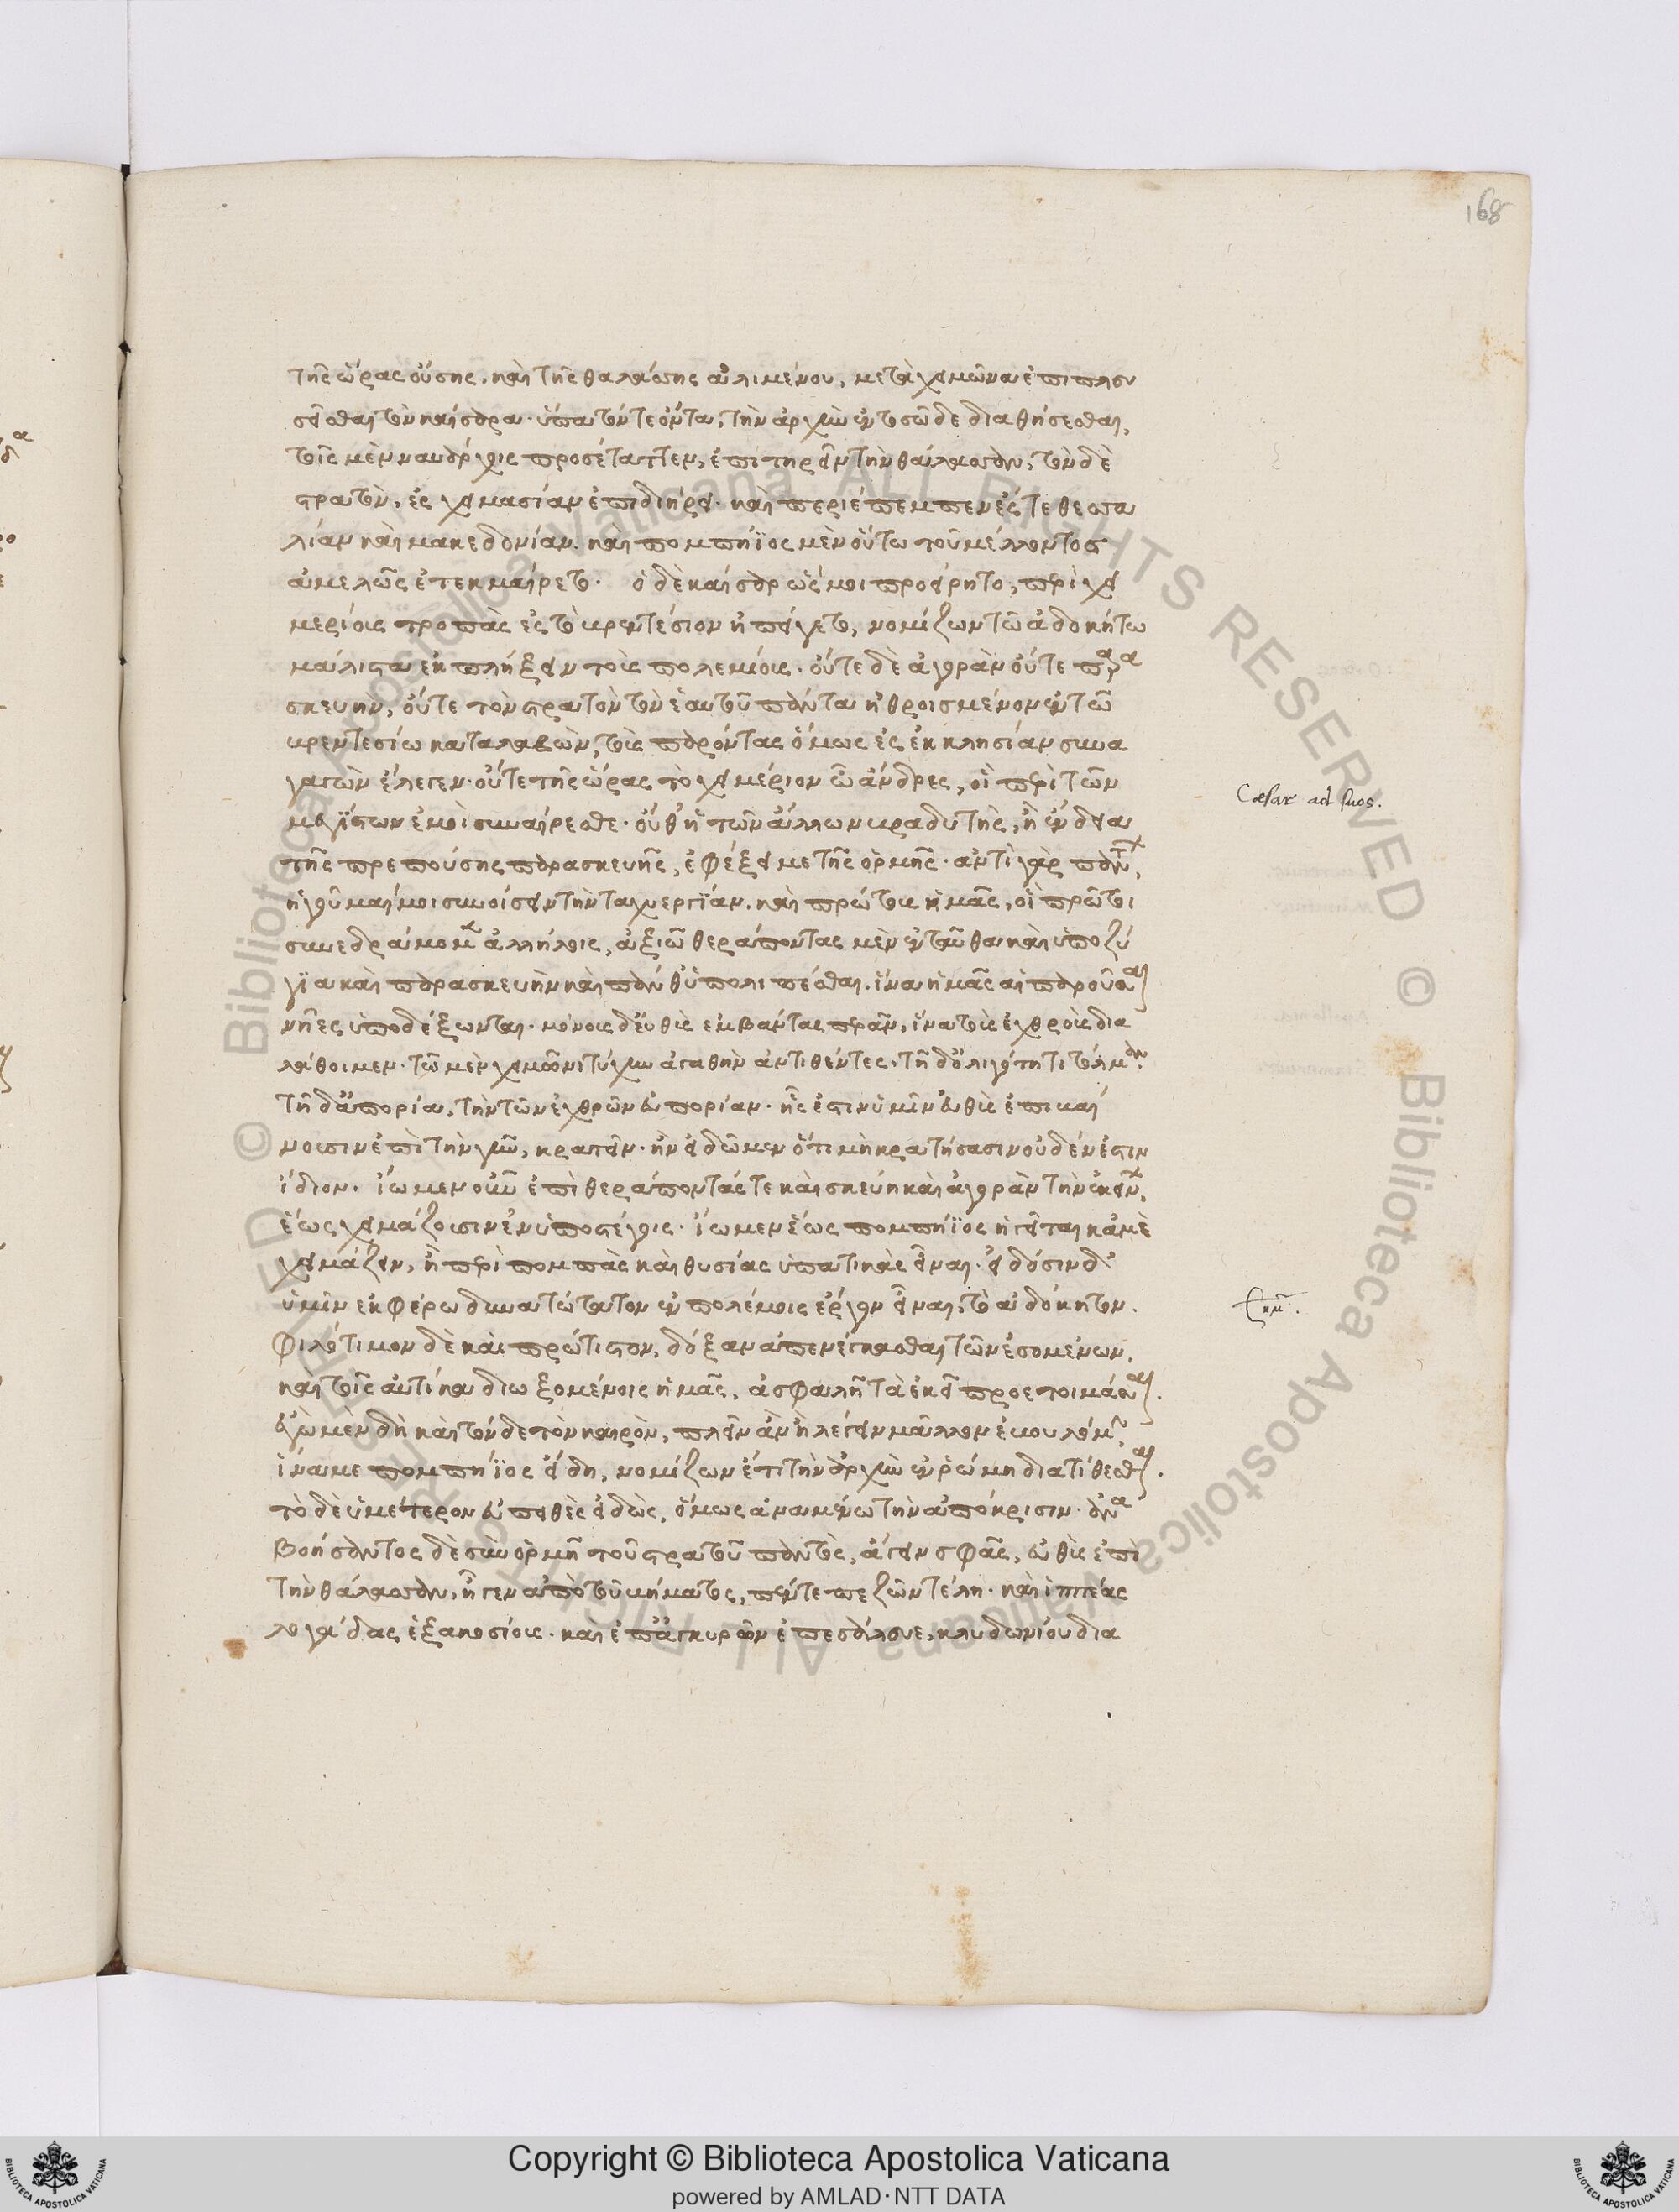 168
τῆς ὥρας οὔσης, καὶ τῆς θαλάσσης ἀλιμένου, μετὰ χειμῶνα ἐπιπλευ
σεῖσθαι τὸν καίσαρα· ὕπατόν τε ὄντα, τὴν ἀρχὴν ἐν τοσῶδε διαθήσεσθαι,
τοῖς μὲν ναυάρχοις προσέταττεν, ἐπιτηρεῖν τὴν θάλασσαν, τὸν δὲ
στρατὸν, ἐς χειμασίαν ἐπιδιῄρει· καὶ περιέπεμπεν ἔς τε θεσσα
λίαν καὶ μακεδονίαν. καὶ πομπήϊος μὲν οὕτω τοῦ μέλλοντος
ἀμελῶς ἐτεκμαίρετο· ὁ δὲ καίσαρ ὥς μοι προείρητο, περὶ χει
μερίους τροπὰς ἐς τὸ βρεντέσιον ἠπείγετο, νομίζων τῶ ἀδοκήτω
μάλιστα ἐκπλήξειν τοὺς πολεμίους· οὔτε δὲ ἀγορὰν οὔτε παρα
σκευὴν, οὔτε τὸν στρατὸν τὸν ἑαυτοῦ πάντα ἠθροισμένον ἐν τῶ
βρεντεσίω καταλαβὼν, τοὺς παρόντας ὅμως ἐς ἐκκλησίαν συνα
γαγὼν ἔλεγεν· οὔτε τῆς ὥρας τὸ χειμέριον ὦ ἄνδρες, οἳ περὶ τῶν
μεγίστων ἐμοὶ συναίρεσθε· οὔθ' ἡ τῶν ἄλλων βραδυτὴς, ἢ ἔνδεια
τῆς πρεπούσης παρασκευῆς, ἐφέξει με τῆς ὁρμῆς· ἀντὶ γὰρ πάντων,
ἡγοῦμαί μοι συνοίσειν τὴν ταχυεργίαν. καὶ πρώτους ἡμᾶς, οἳ πρῶτοι
συνεδράμομεν ἀλλήλοις, ἀξιῶ θεράποντας μὲν ἐνταῦθα καὶ ὑποζύ
για καὶ παρασκευὴν καὶ πάνθ' ὑπολιπέσθαι. ἵνα ἡμᾶς αἱ παροῦσαι
νῆες ὑποδέξωνται· μόνους δ' εὐθὺς ἐμβάντας περᾶν, ἵνα τοὺς ἐχθροὺς δια
λάθοιμεν· τῶ μὲν χειμῶνι τύχην ἀγαθὴν ἀντιθέντες· τῇ δ' ὀλιγότητι τόλμαν.
τῇ δ' ἀπορία, τὴν τῶν ἐχθρῶν εὐπορίαν· ἧς ἔστιν ὑμῖν εὐθὺς ἐπιβαί
νουσιν ἐπὶ τὴν γῆν, κρατεῖν· ἢν εἰδῶμεν ὅτι μὴ κρατήσασιν οὐδέν ἐστιν
ἴδιον. ἴωμεν οὖν ἐπὶ θεράποντάς τε καὶ σκεύη καὶ ἀγορὰν τὴν ἐκείνων,
ἕως χειμάζουσιν ἐν ὑποστέγοις· ἴωμεν ἕως πομπήϊος ἡγεῖται κἀμὲ
χειμάζειν, ἢ περὶ πομπὰς καὶ θυσίας ὑπατικὰς εἶναι· εἰδόσιν δ'
ὑμῖν ἐκφέρω δυνατώτατον ἐν πολέμοις ἔργον εἶναι, τὸ ἀδόκητον.
φιλότιμον δὲ καὶ πρώτιστον, δόξαν ἀπενέγκασθαι τῶν ἐσομένων,
καὶ τοῖς αὐτίκα διωξομένοις ἡμᾶς, ἀσφαλῆ τὰ ἐκεῖ προετοιμάσαι.
ἐγὼ μὲν δὴ καὶ τόνδε τὸν καιρὸν, πλεῖν ἂν ἢ λέγειν μᾶλλον ἐβουλόμην,
ἵνα με πομπήϊος εἴδη, νομίζων ἔτι τὴν ἀρχὴν ἐν ῥώμη διατίθεσθαι.
τὸ δὲ ὑμέτερον εὐπειθὲς εἰδὼς, ὅμως ἀναμένω τὴν ἀπόκρισιν· ἀνα
βοήσαντος δὲ σὺν ὁρμῇ τοῦ στρατοῦ παντὸς, ἄγειν σφᾶς, εὐθὺς ἐπὶ
τὴν θάλασσαν, ἦγεν ἀπὸ τοῦ βήματος, πέντε πεζῶν τέλη· καὶ ἱππέας
λογάδας ἑξακοσίους· καὶ ἐπ' ἀγκυρῶν ἀπεσάλευε, κλυδωνίου δια
Cæsar ad suos.
Copyright © Biblioteca Apostolica Vaticana
powered by AMLAD·NTT DATA